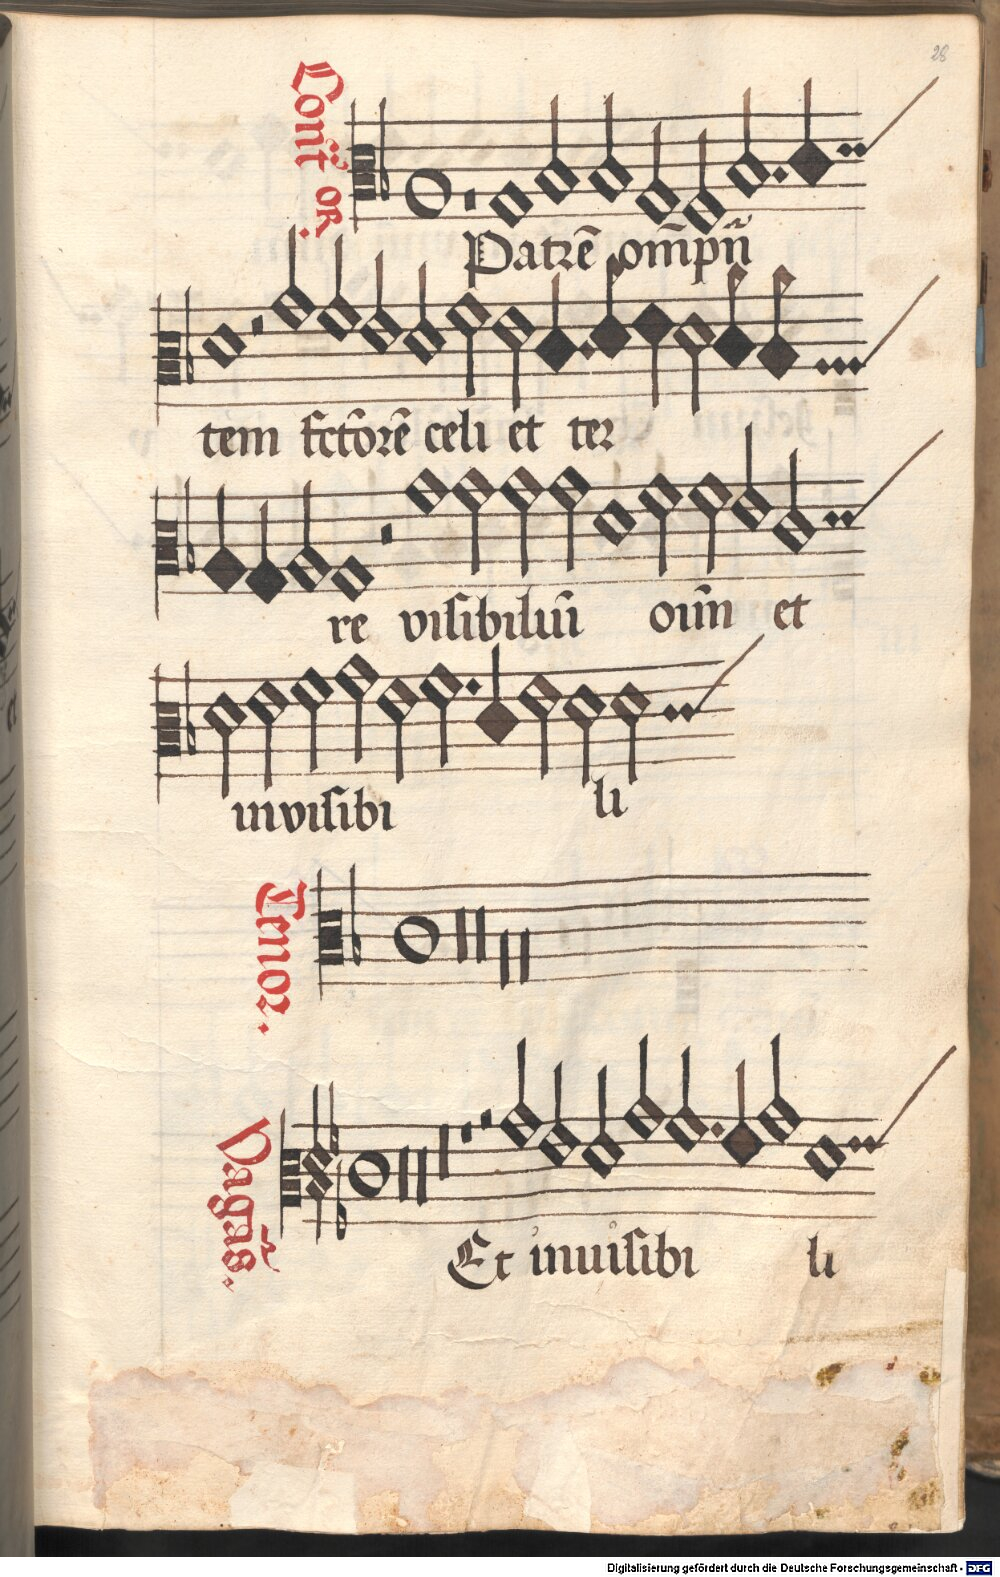 28
Contr̃ or.
Patrẽ om̃pñ
tem fct̃orẽ celi et ter
re visibiliũ oiũm et
invisibi li
Tenor.
Vagãs.
Et invisibi li
Digitalisierung gefördert durch die Deutsche Forschungsgemeinschaft - DFG